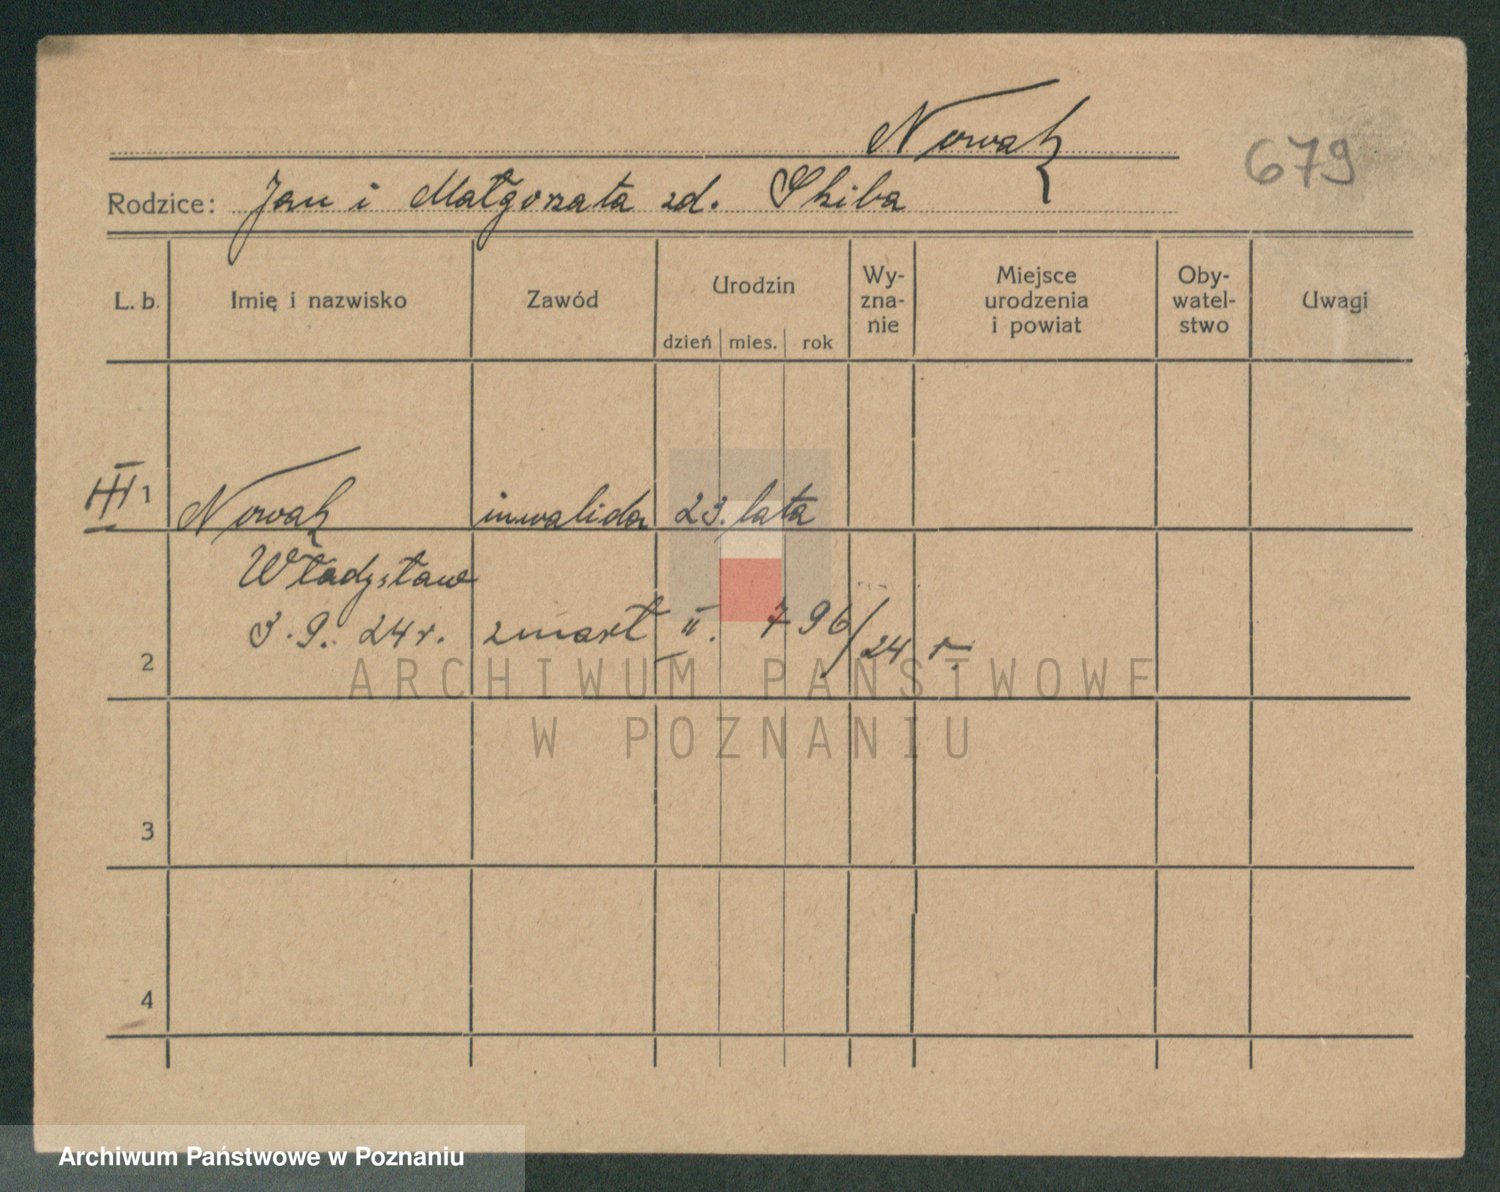 Nowak
679
Rodzice: Jan i Małgorzata zd. Skiba
L. b. Imię i nazwisko Zawód Urodzin dzień mies. rok Wy-zna-nie Miejsce urodzenia i powiat Oby-watel-stwo Uwagi
III 1 Nowak inwalida 23 lata
Władysław
3.9. 24 r. zmarł II. 796/24 r.
2
ARCHIWUM PAŃSTWOWE
W POZNANIU
3
4
Archiwum Państwowe w Poznaniu